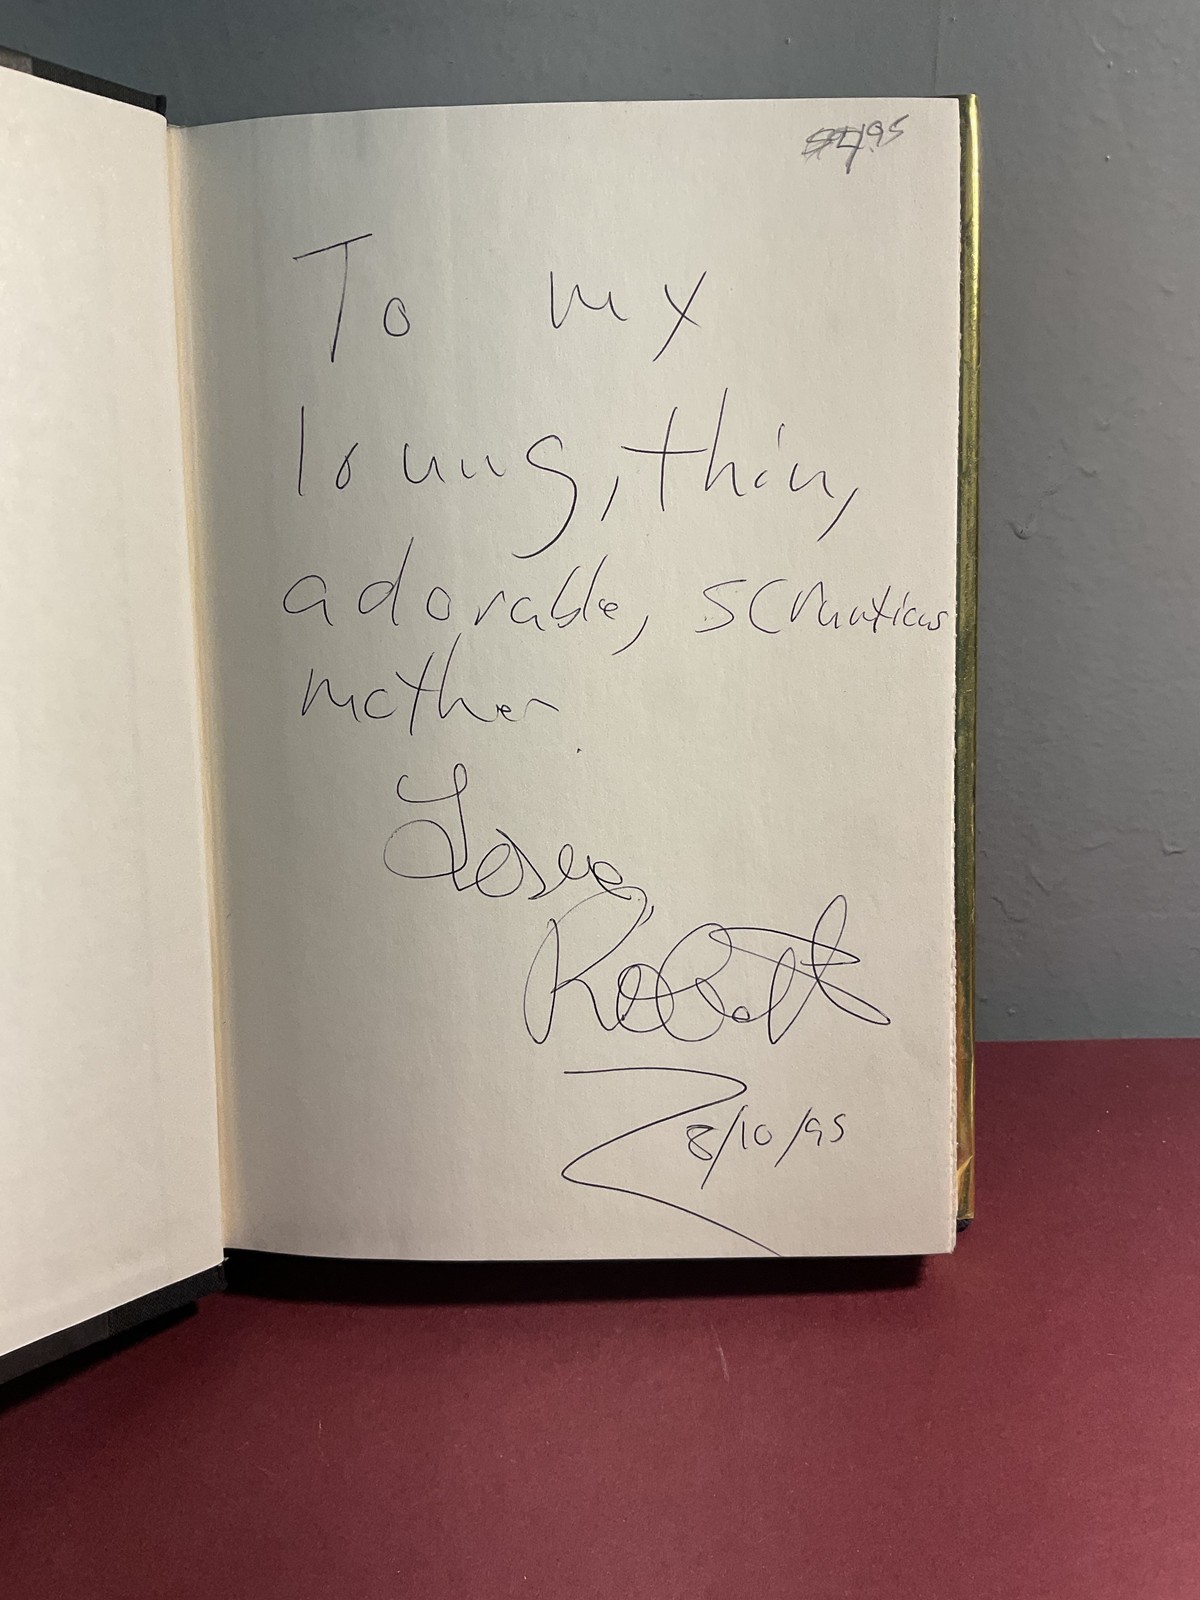 $4.95
To my
loving, thin,
adorable,
mother.
Love,
Robert
8/10/95